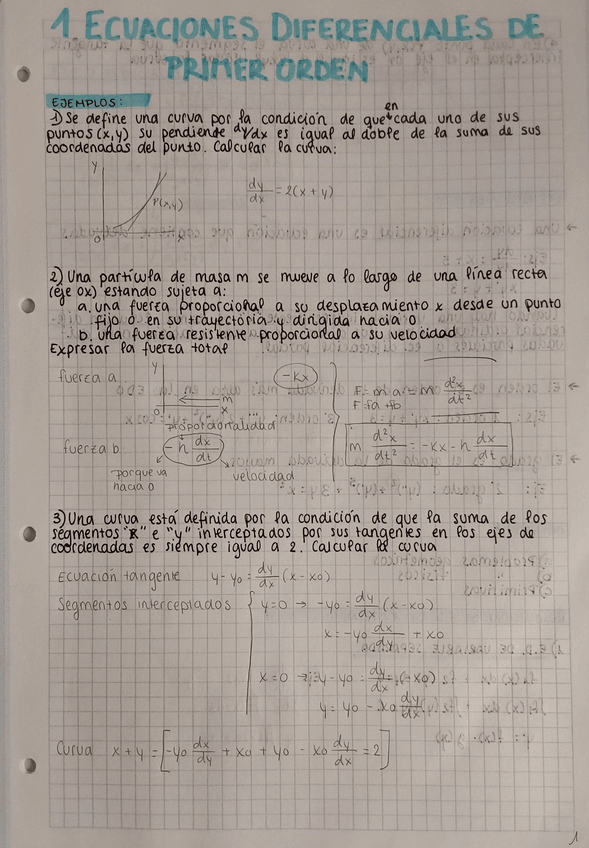 1. ECUACIONES DIFERENCIALES DE
PRIMER ORDEN
EJEMPLOS:
1) Se define una curva por la condición de que en cada uno de sus
puntos (x,y) su pendiente dy/dx es igual al doble de la suma de sus
coordenadas del punto. Calcular la curva:
y
P(x,y)
0 x
dy/dx = 2(x + y)
2) Una partícula de masa m se mueve a lo largo de una línea recta
(eje ox) estando sujeta a:
a. una fuerza proporcional a su desplazamiento x desde un punto
fijo o en su trayectoria y dirigida hacia O
b. una fuerza resistente proporcional a su velocidad
Expresar la fuerza total
fuerza a
y
m
0 x
-kx
F = m·a = m d²x/dt²
F = fa + fb
proporcionalidad
fuerza b
-h dx/dt
porque va
hacia O
velocidad
m d²x/dt² = -kx - h dx/dt
3) Una curva está definida por la condición de que la suma de los
segmentos "x" e "y" interceptados por sus tangentes en los ejes de
coordenadas es siempre igual a 2. Calcular la curva
Ecuación tangente y-yo = dy/dx (x-xo)
Segmentos interceptados
y=0 → -yo = dy/dx (x-xo)
x = -yo dx/dy + xo
x=0 → y-yo = dy/dx (-xo)
y = yo - xo dy/dx
Curva x+y = [-yo dx/dy + xo + yo - xo dy/dx = 2]
1